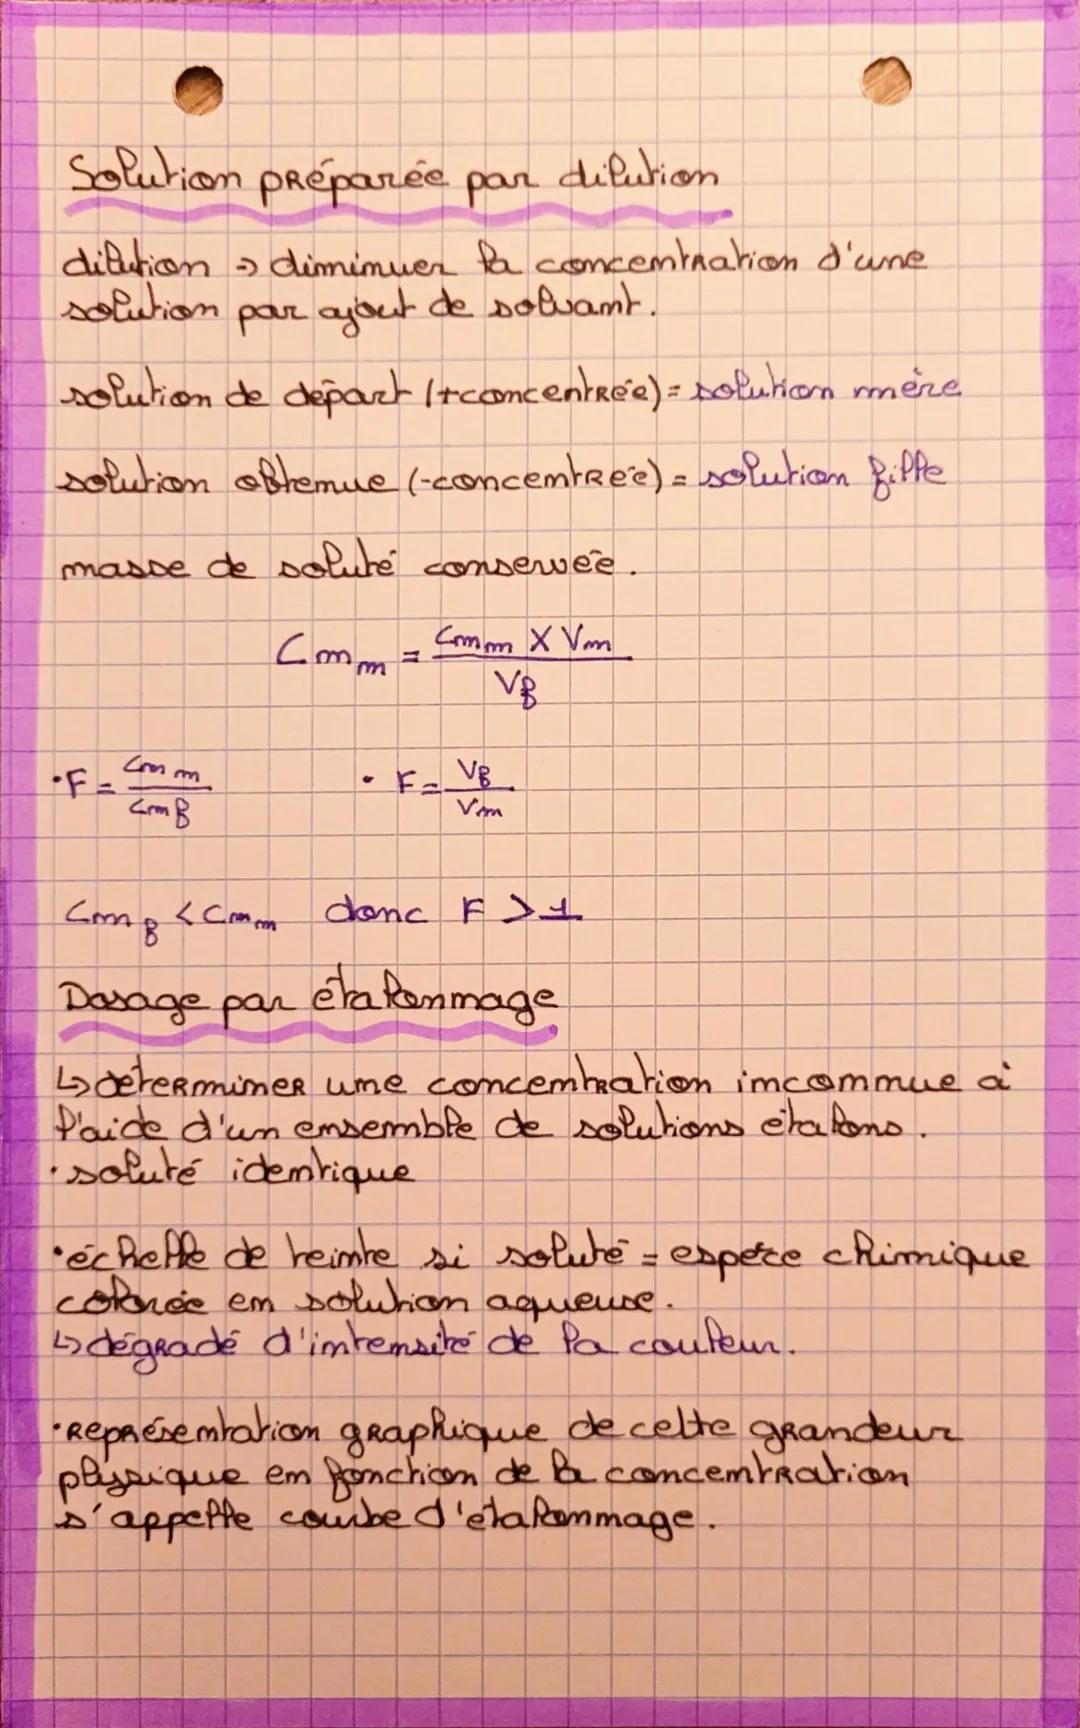 Solution préparée par dilution
dilution → diminuer la concentration d'une
solution par ajout de solvant.
solution de départ (+concentrée) = solution mère
solution obtenue (-concentrée) = solution fille
masse de soluté conservée.
Cm_m = (Cm_m X Vm) / Vf
• F = Cm_m / Cm_f • F = Vf / Vm
Cm_f < Cm_m donc F > 1
Dosage par étalonnage
↳ déterminer une concentration inconnue à
l'aide d'un ensemble de solutions étalons.
• soluté identique
• échelle de teinte si soluté = espèce chimique
colorée en solution aqueuse.
↳ dégradé d'intensité de la couleur.
• représentation graphique de cette grandeur
physique en fonction de la concentration
s'appelle courbe d'étalonnage.